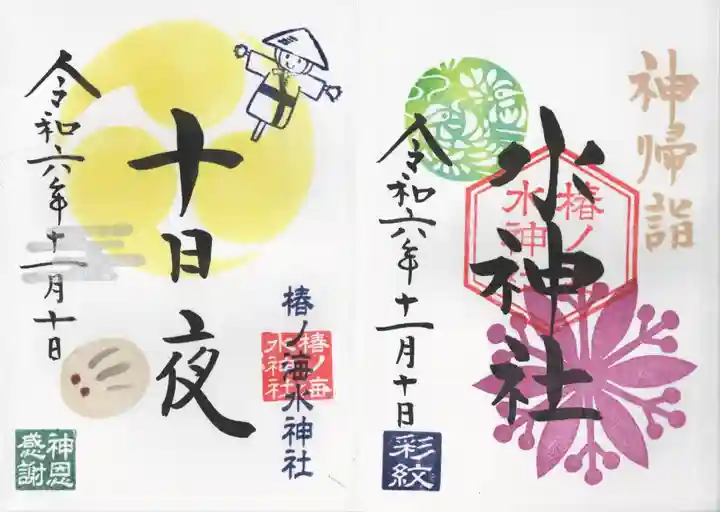 神帰詣
水神社
椿ノ海
水神社
令和六年十一月十日
彩紋
十日夜
椿ノ海水神社
椿ノ海
水神社
令和六年十一月十日
神恩
感謝